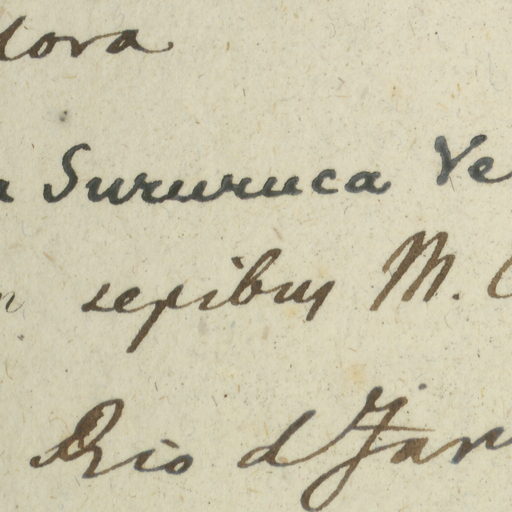 lora
a Sururuca Ve
n sepibus M. C
Rio d Jan